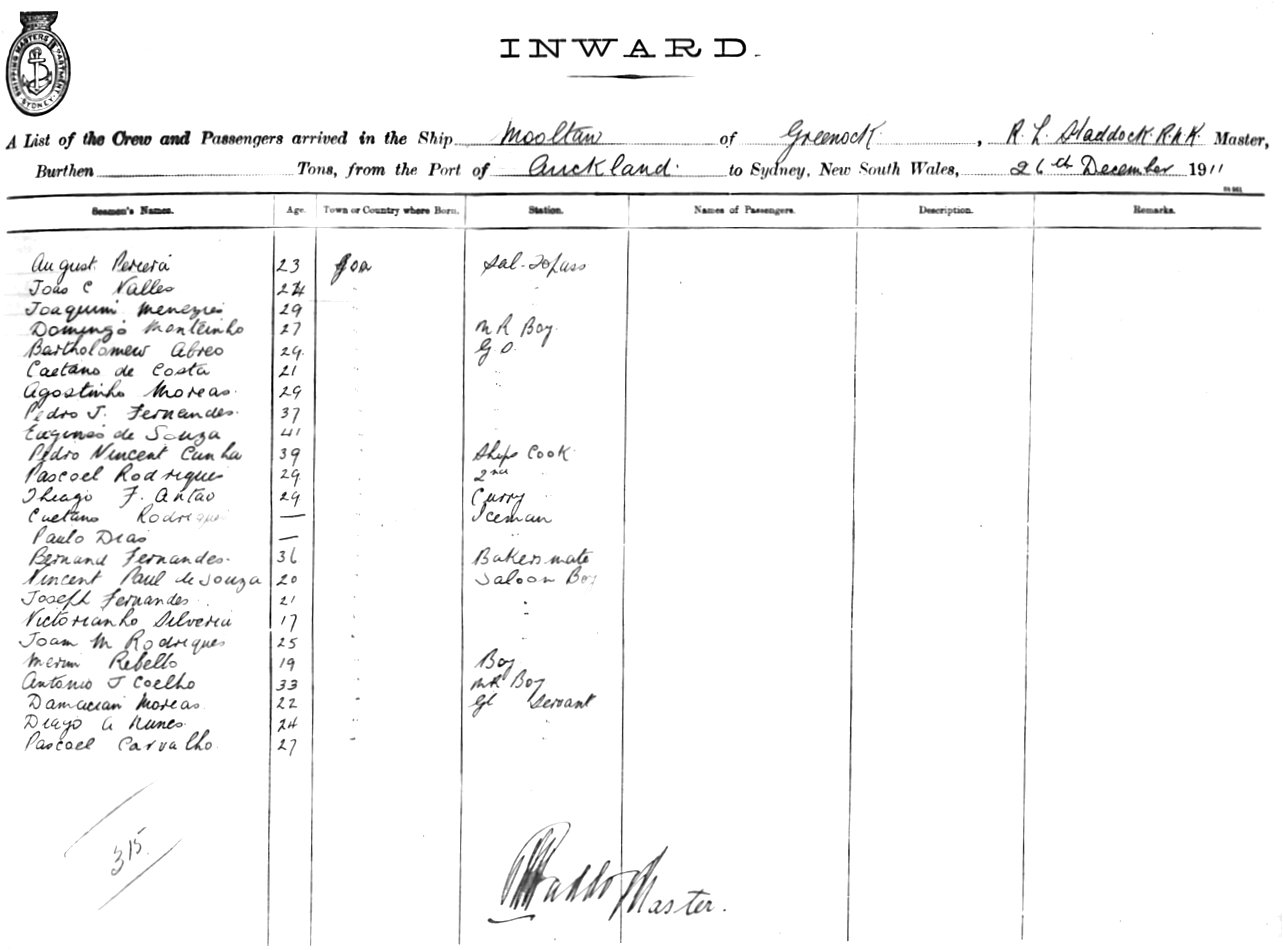 SHIPPING MASTERS DEPARTMENT SYDNEY
INWARD.
A List of the Crew and Passengers arrived in the Ship Mooltan of Greenock, R. L. Haddock. R.N.R. Master,
Burthen Tons, from the Port of Auckland. to Sydney, New South Wales, 26th December 1911
Seamen's Names. Age. Town or Country where Born. Station. Names of Passengers. Description. Remarks.
August. Pereira 23 Goa Sal-Topass
Joao C Valles 24 "
Joaquim Menezies 29 "
Domingo Monteinho 27 " M R Boy.
Bartholomew Abreo 29. " G S.
Caetano de Costa 21 " "
Agostinho Moreas. 29 " "
Pedro J. Fernandes. 37 " "
de Souza 41 " "
Pedro Vincent Cunha 39 " Ships Cook
Pascoel Rodrigues 29 " 2nd "
Thiago F. Antao 29 " Curry "
Caetano Rodrigues — " Iceman
Paulo Dias —
Bernard Fernandes. 36 " Bakers mate
Vincent Paul de Souza 20 " Saloon Boy
Joseph Fernandes. 21 " "
Victorianho Silveria 17 " "
Joam M Rodriques 25 " "
Rebello 19 " Boy
Antonio J Coelho 33 " MR Boy
Damacian Moreas. 22 " Gl Servant
Diago A Nunes. 24 " "
Pascoel Carvalho. 27 " "
315.
Haddock Master.